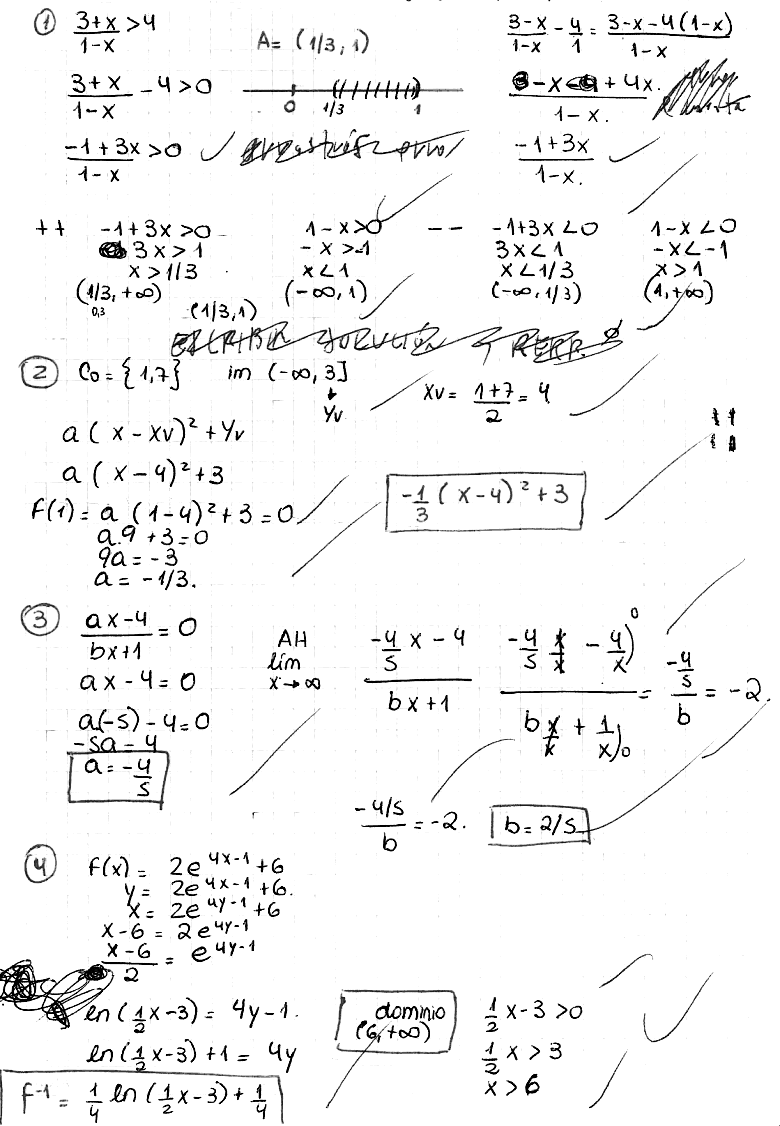 ① 3+x/1-x > 4
A = (1/3, 1)
3-x/1-x - 4/1 = 3-x-4(1-x)/1-x
3+x/1-x - 4 > 0
0 1/3 1
3-x-4+4x./1-x.
-1+3x/1-x > 0 ✓
-1+3x/1-x. ✓
++ -1+3x>0 1-x>0 -- -1+3x<0 1-x<0
3x>1 -x>-1 3x<1 -x<-1
x>1/3 x<1 x<1/3 x>1
(1/3, +∞) (-∞, 1) (-∞, 1/3) (1, +∞)
0,3 (1/3, 1)
∅
② C₀ = {1,7} im (-∞, 3]
↓
Yv
Xv = 1+7/2 = 4
a(x-xv)²+Yv
a(x-4)²+3
-1/3 (x-4)²+3
F(1) = a (1-4)²+3 = 0
a.9 + 3 = 0
9a = -3
a = -1/3.
③ ax-4/bx+1 = 0
ax-4 = 0
a(-5)-4 = 0
-5a = 4
a = -4/5
AH
lím
x→∞
-4/5 x - 4/bx+1
-4/5 x/x - 4/x)0/b x/x + 1/x)0 = -4/5/b = -2.
-4/5/b = -2.
b = 2/5
④ f(x) = 2e^4x-1 + 6
y = 2e^4x-1 + 6.
x = 2e^4y-1 + 6
x-6 = 2e^4y-1
x-6/2 = e^4y-1
ln(1/2x-3) = 4y-1.
ln(1/2x-3)+1 = 4y
f⁻¹ = 1/4 ln(1/2x-3) + 1/4
dominio
(6, +∞)
1/2x-3 > 0
1/2x > 3
x > 6